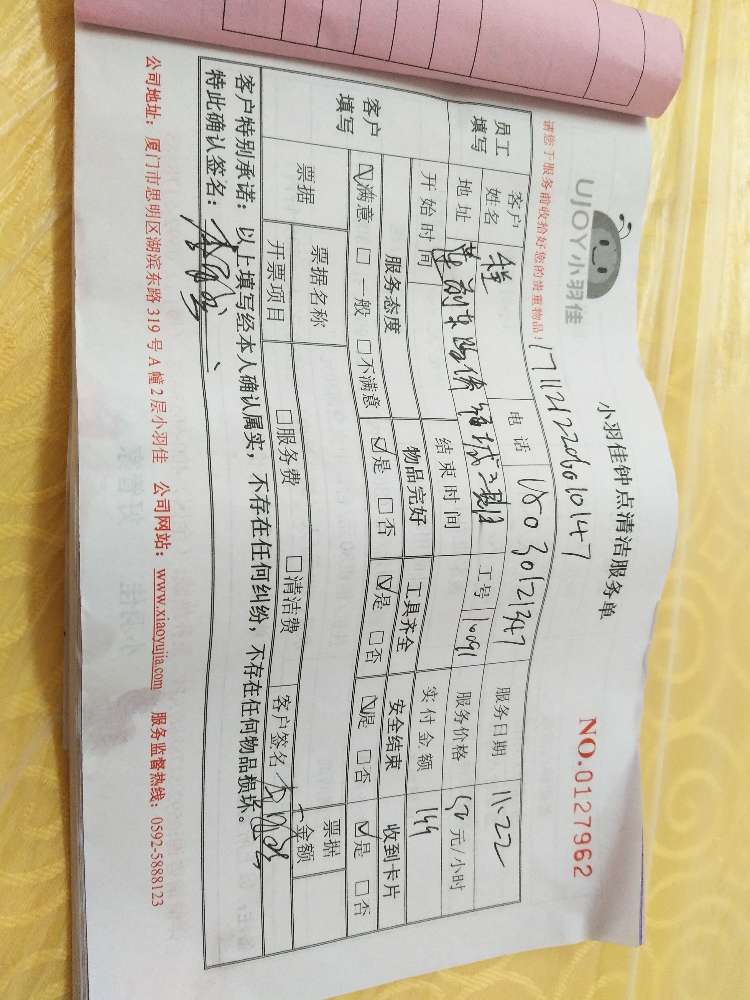 UJOY小羽佳
小羽佳钟点清洁服务单
NO.0127962
请您于服务前收拾好您的贵重物品！
171121220601047
员工填写
客户姓名
电话 18030121347
服务日期 11.22
地址
工号 16091
服务价格 元/小时
开始时间
结束时间
实付金额 144
客户填写
服务态度 物品完好 工具齐全 安全结束 收到卡片
☑满意 □一般 □不满意 ☑是 □否 ☑是 □否 ☑是 □否 ☑是 □否
票据
票据名称
票据金额
开票项目 □服务费 □清洁费 客户签名
客户特别承诺：以上填写经本人确认属实，不存在任何纠纷，不存在任何物品损坏。
特此确认签名：
公司地址：厦门市思明区湖滨东路319号A幢2层小羽佳 公司网站：www.xiaoyujia.com 服务监督热线：0592-5888123